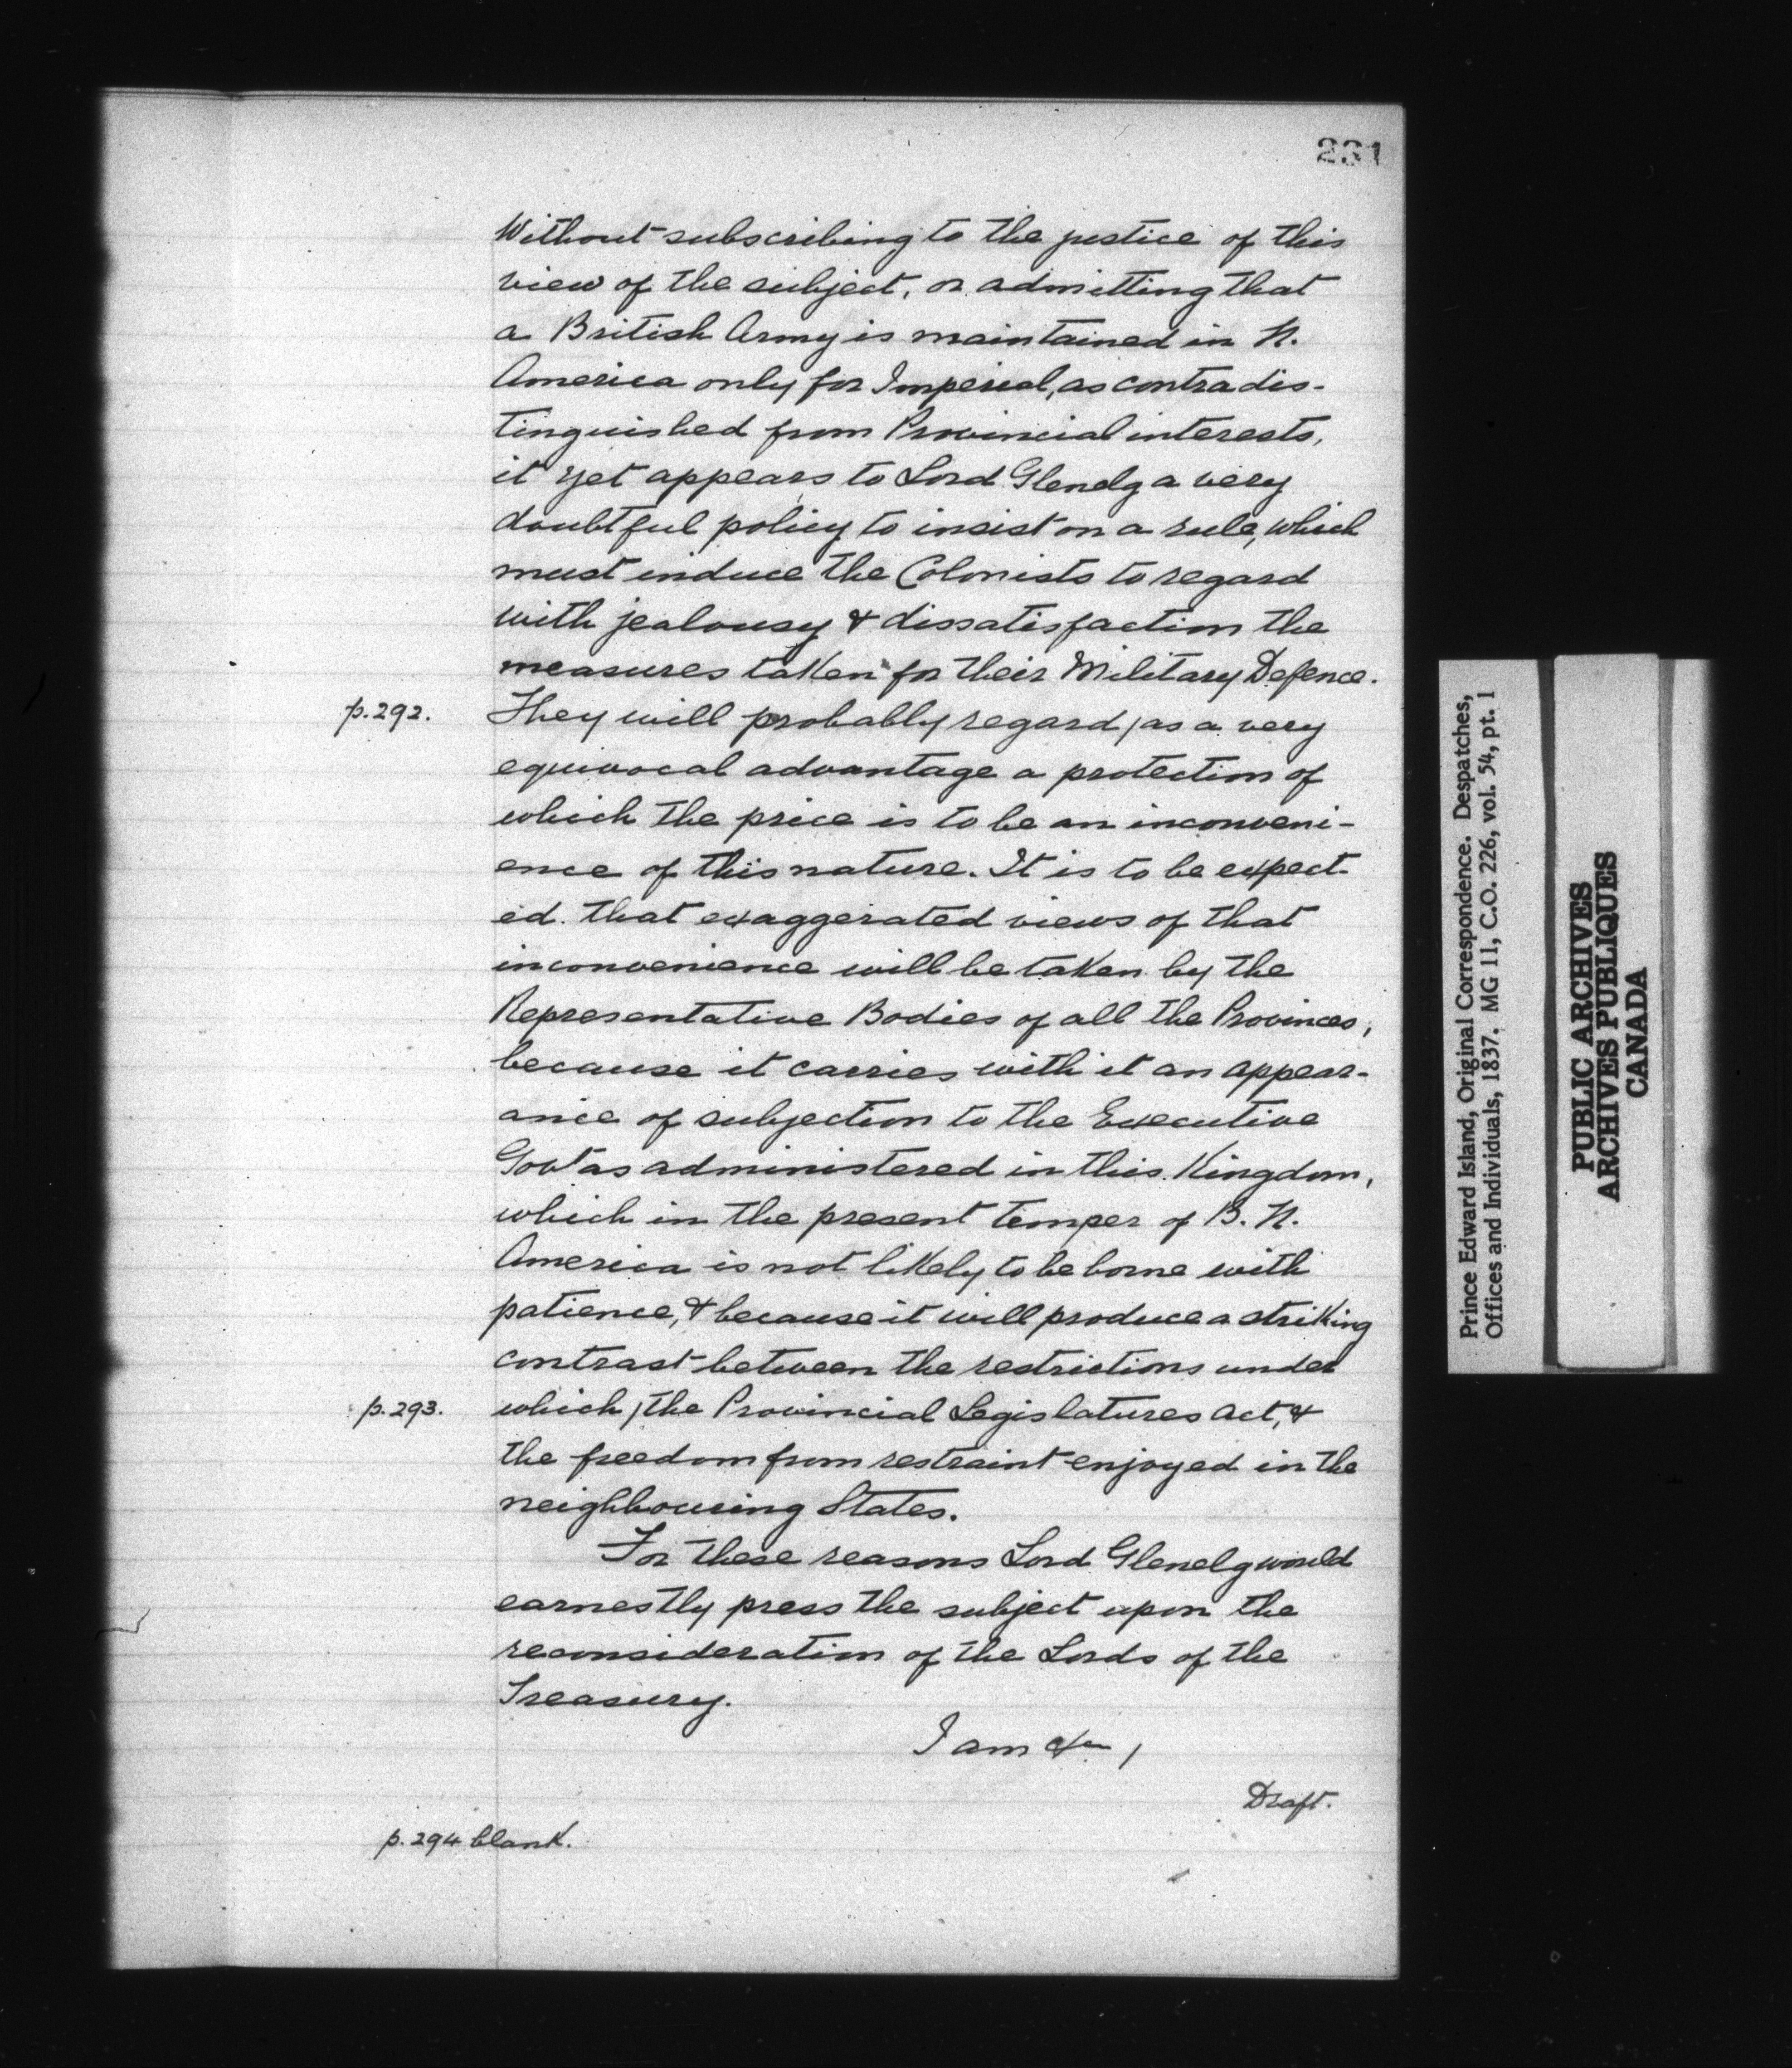 231
Without subscribing to the justice of this
view of the subject, or admitting that
a British Army is maintained in N.
America only for Imperial, as contradis-
tinguished from Provincial interests,
it yet appears to Lord Glenelg a very
doubtful policy to insist on a rule, which
must induce the Colonists to regard
with jealousy & dissatisfaction the
measures taken for their Military Defence.
p.292. They will probably regard / as a very
equivocal advantage a protection of
which the price is to be an inconveni-
ence of this nature. It is to be expect-
ed that exaggerated views of that
inconvenience will be taken by the
Representative Bodies of all the Provinces,
because it carries with it an appear-
ance of subjection to the Executive
Govt as administered in this Kingdom,
which in the present temper of B. N.
America is not likely to be borne with
patience, & because it will produce a striking
contrast between the restrictions under
p.293. which / the Provincial Legislatures act, &
the freedom from restraint enjoyed in the
neighbouring States.
For these reasons Lord Glenelg would
earnestly press the subject upon the
reconsideration of the Lords of the
Treasury.
I am &c,
Draft.
p.294 blank.
Prince Edward Island, Original Correspondence. Despatches,
Offices and Individuals, 1837. MG 11, C.O. 226, vol. 54, pt. 1
PUBLIC ARCHIVES
ARCHIVES PUBLIQUES
CANADA